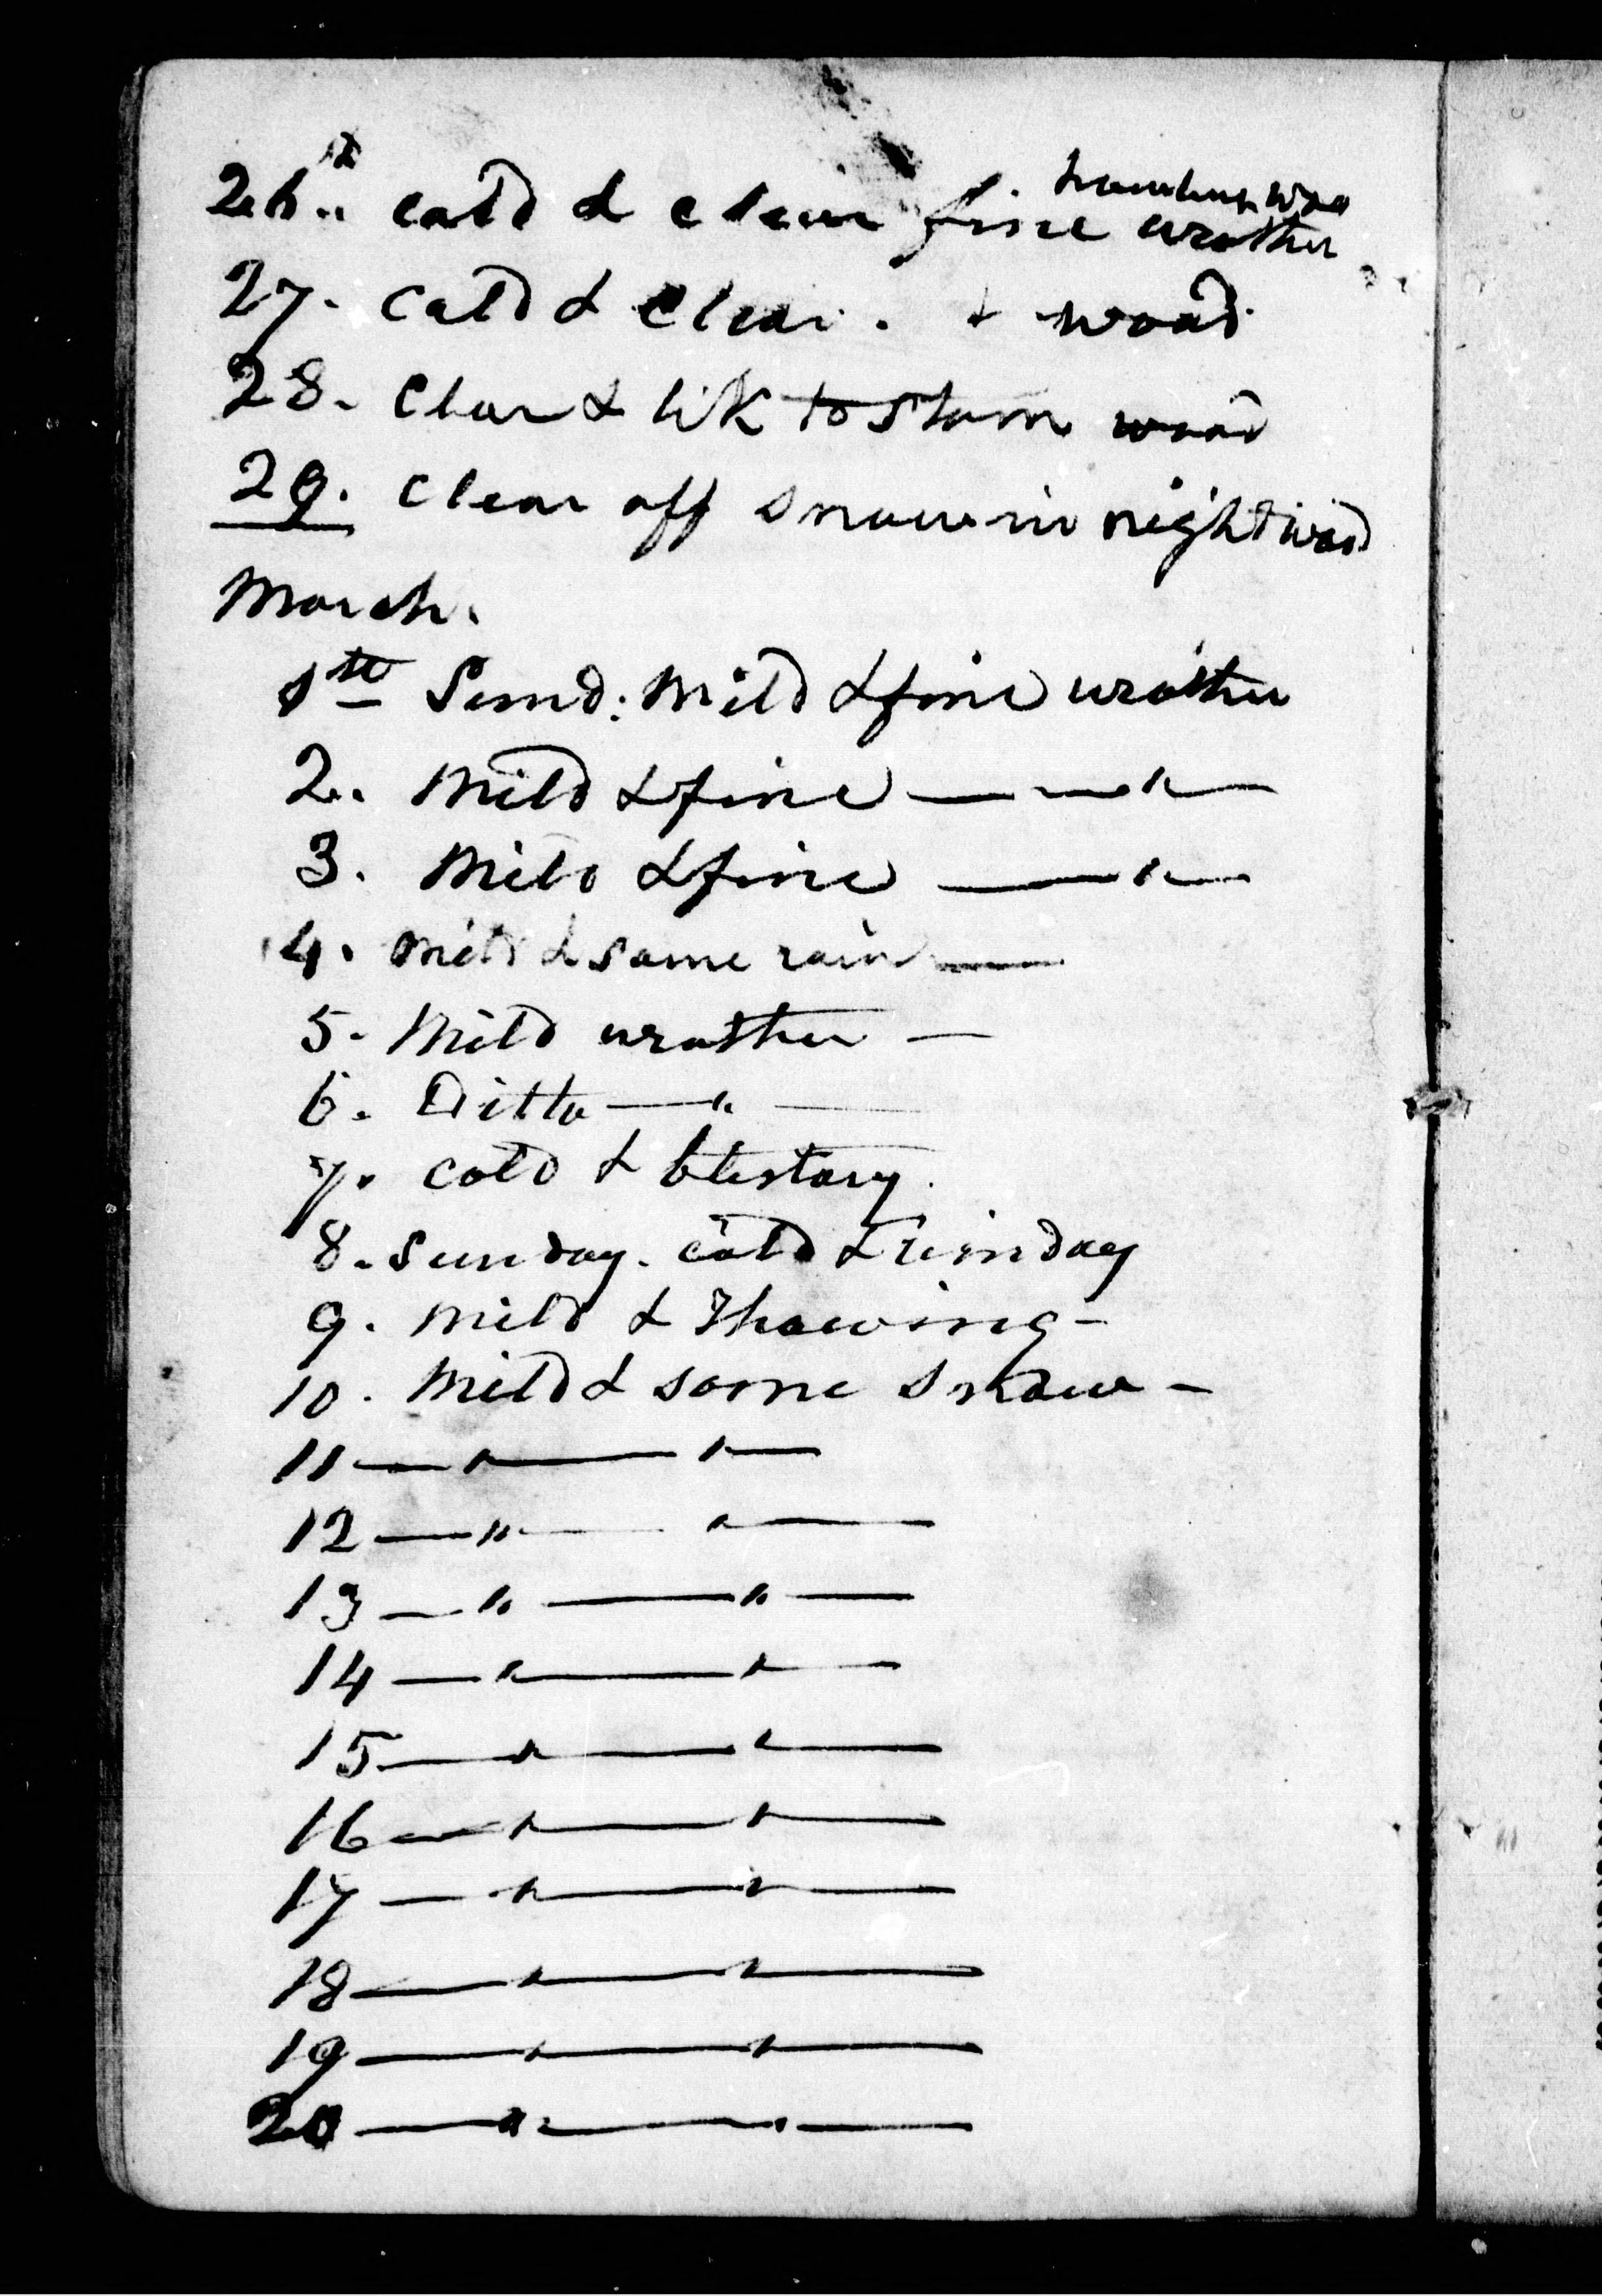 26th cold & clear fine weather
27. Cold & Clear. & wood
28. Clear & lik to Storm wood
29. Clear off snow in night wood
March.
1st Sund: Mild & fine weather
2. Mild & fine — — " —
3. Mild & fine — " —
4. Mild & some rain —
5. Mild weather —
6. Ditto — " —
7. Cold & blestory.
8. Sunday. cold & winday
9. Mild & Thawing -
10. Mild & some Snow -
11 — " — " —
12 — " — " —
13 — " — " —
14 — " — " —
15 — " — " —
16 — " — " —
17 — " — " —
18 — " — " —
19 — " — " —
20 — " — " —